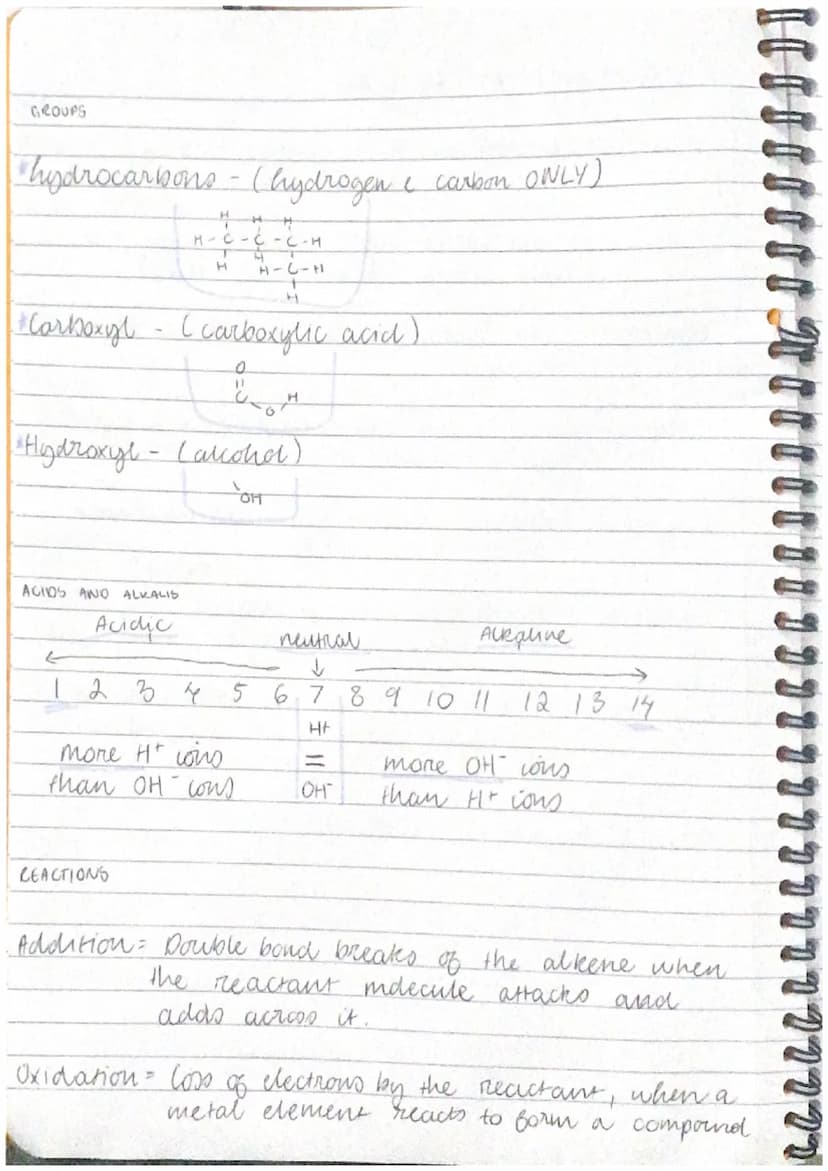 GROUPS
*hydrocarbons - (hydrogen & carbon ONLY)
H H H
H-C-C-C-H
H H H-C-H
H
*Carboxyl - (carboxylic acid)
O
C
O H
*Hydroxyl - (alcohol)
OH
ACIDS AND ALKALIS
Acidic neutral Alkaline
1 2 3 4 5 6 7 8 9 10 11 12 13 14
H+
more H+ ions = more OH- ions
than OH- ions OH- than H+ ions
REACTIONS
Addition = Double bond breaks of the alkene when
the reactant molecule attacks and
adds across it.
Oxidation = loss of electrons by the reactant, when a
metal element reacts to form a compound